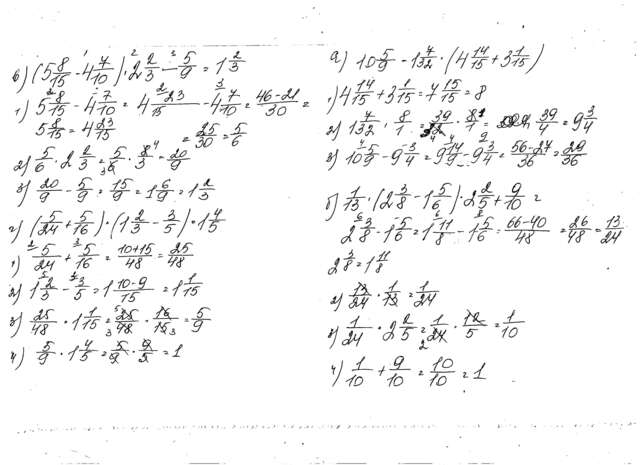 в) (5 8/15 - 4 7/10) · 2 2/3 - 5/9 = 1 2/3
1) 5 8/15 - 4 7/10 = 4 23/15 - 4 7/10 = (46-21)/30 =
5 8/15 = 4 23/15
= 25/30 = 5/6
2) 5/6 · 2 2/3 = 5/6 · 8/3 = 20/9
3) 20/9 - 5/9 = 15/9 = 1 6/9 = 1 2/3
г) (5/24 + 5/16) · (1 2/3 - 3/5) · 1 4/5
1) 5/24 + 5/16 = (10+15)/48 = 25/48
2) 1 2/3 - 3/5 = 1 (10-9)/15 = 1 1/15
3) 25/48 · 1 1/15 = 25/48 · 16/15 = 5/9
4) 5/9 · 1 4/5 = 5/9 · 9/5 = 1
а) 10 5/9 - 1 7/32 · (4 14/15 + 3 1/15)
1) 4 14/15 + 3 1/15 = 7 15/15 = 8
2) 1 7/32 · 8/1 = 39/32 · 8/1 = 39/4 = 9 3/4
3) 10 5/9 - 9 3/4 = 9 14/9 - 9 3/4 = (56-27)/36 = 29/36
б) 1/13 · (2 3/8 - 1 5/6) · 2 2/5 + 9/10 =
2 3/8 - 1 5/6 = 1 11/8 - 1 5/6 = (66-40)/48 = 26/48 = 13/24
2 3/8 = 1 11/8
2) 13/24 · 1/13 = 1/24
3) 1/24 · 2 2/5 = 1/24 · 12/5 = 1/10
4) 1/10 + 9/10 = 10/10 = 1